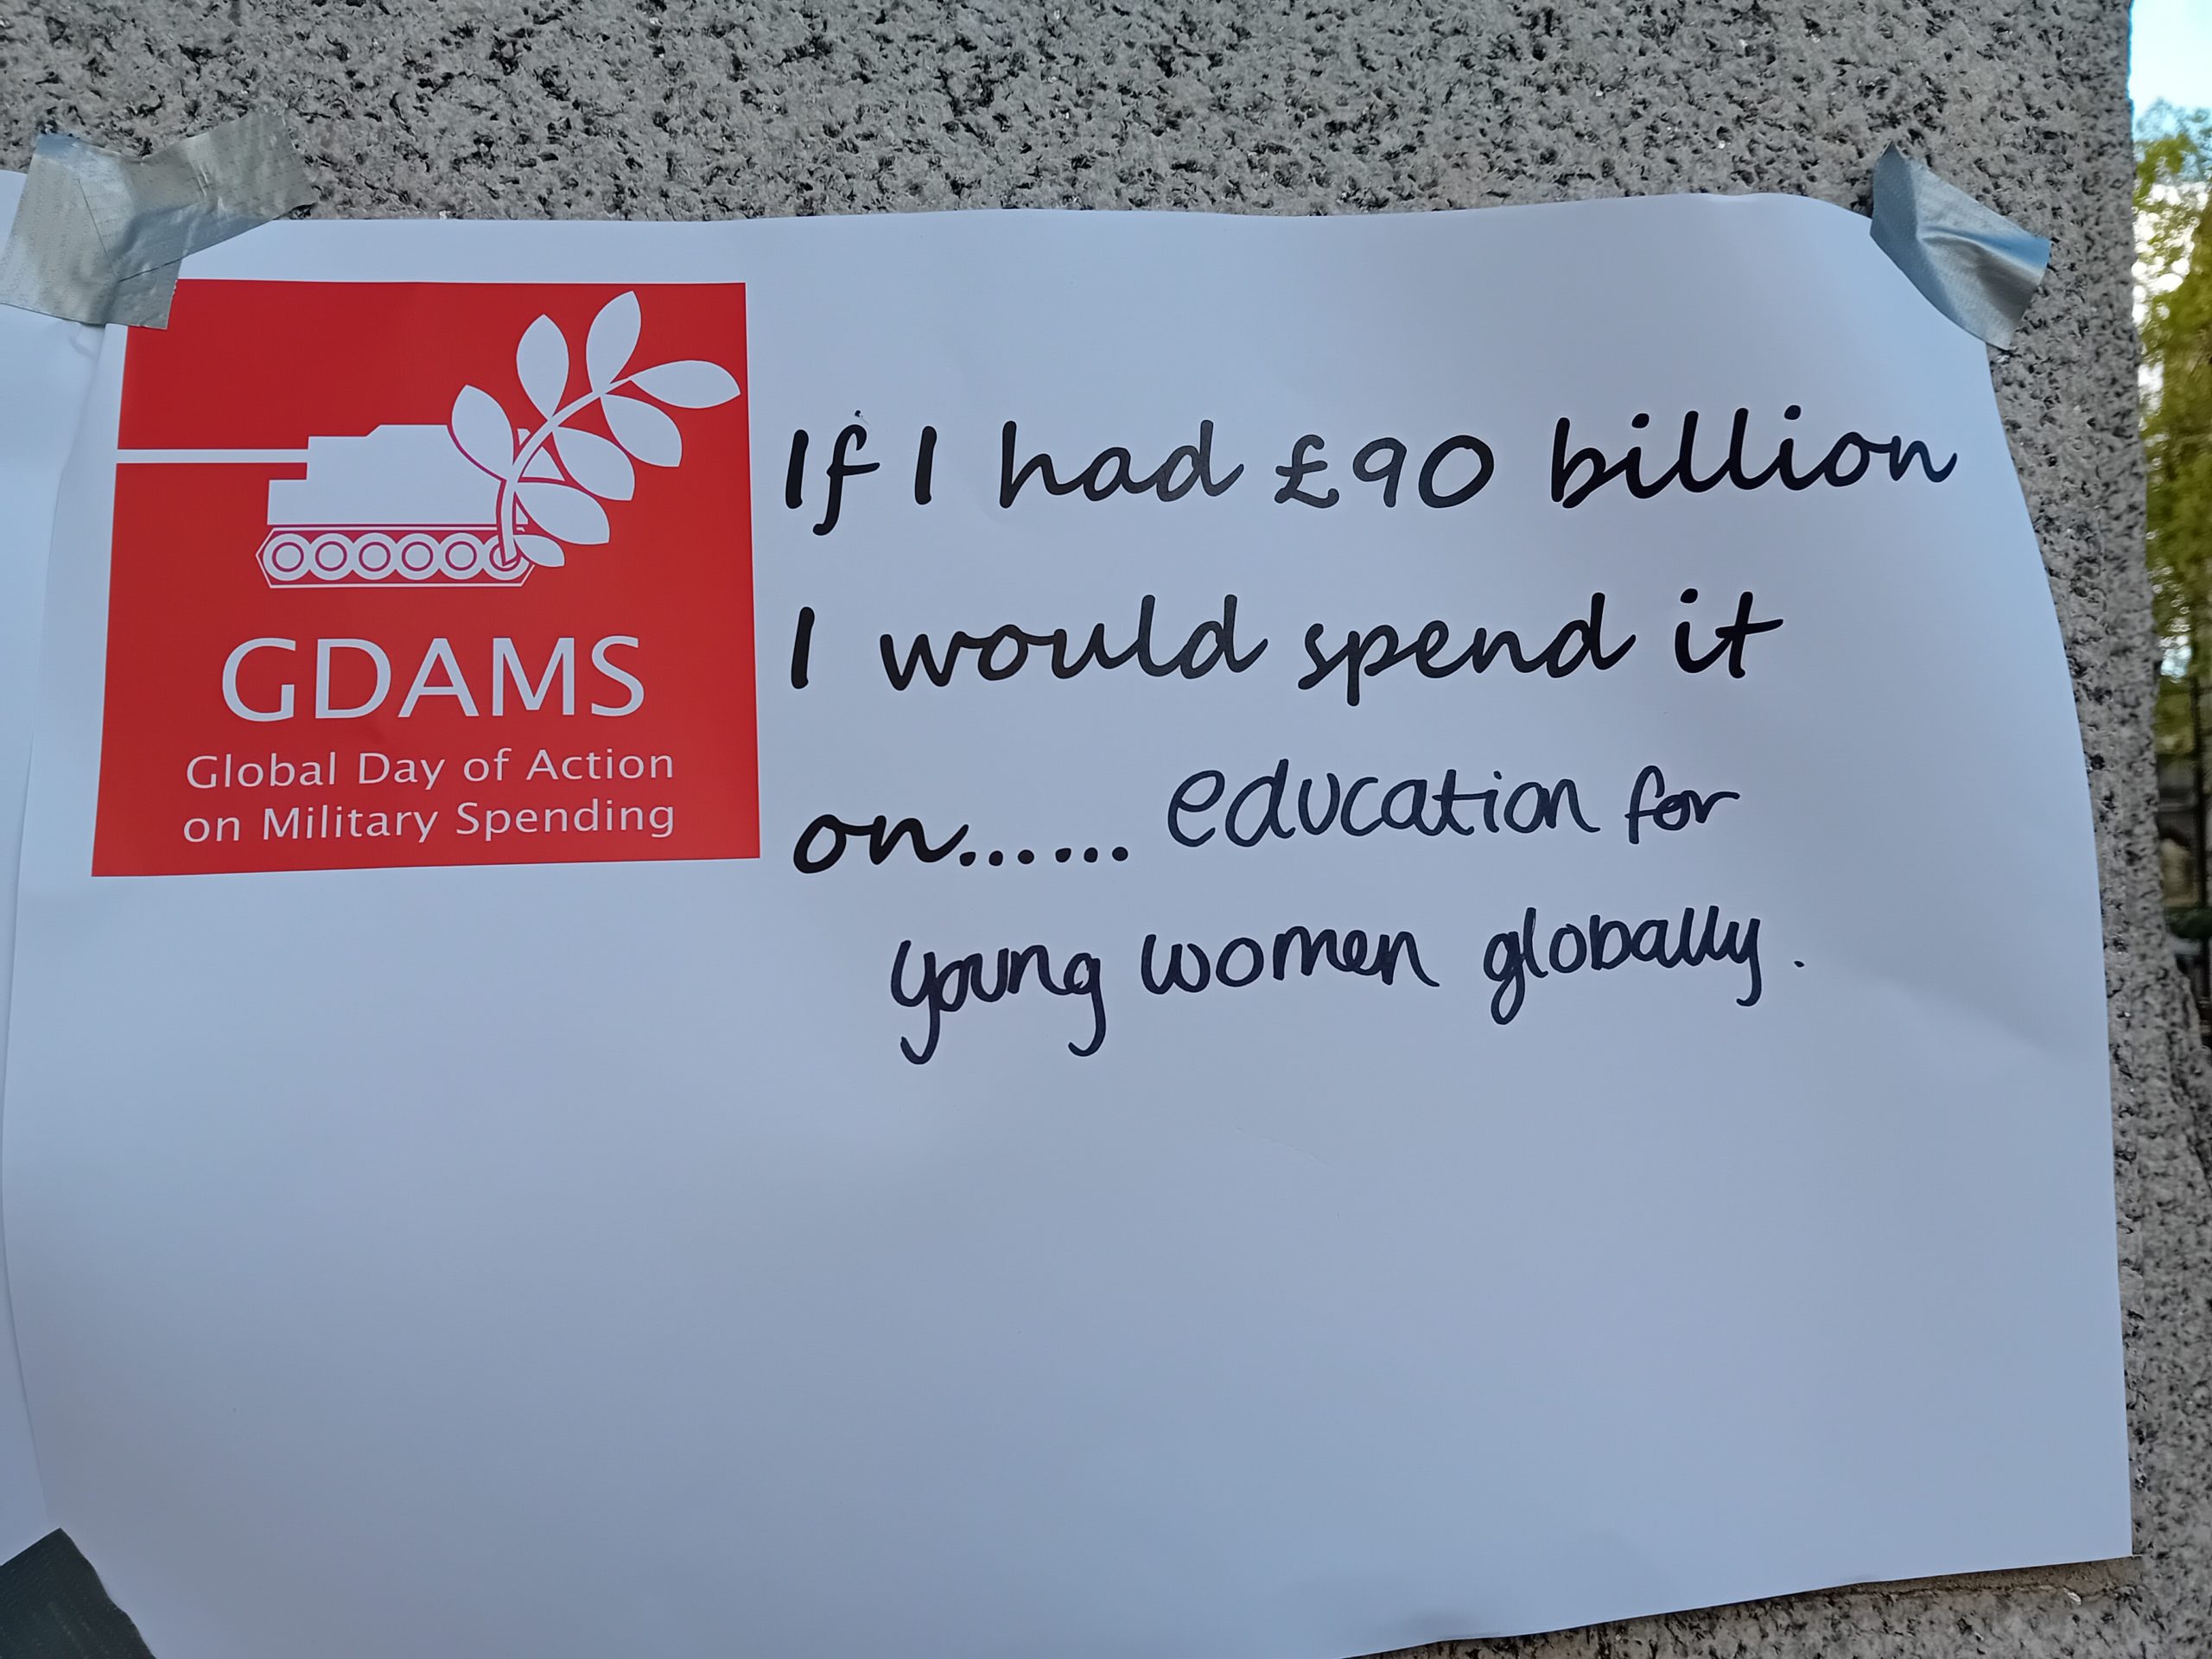 GDAMS
Global Day of Action
on Military Spending
If I had £90 billion
I would spend it
on...... education for
young women globally.